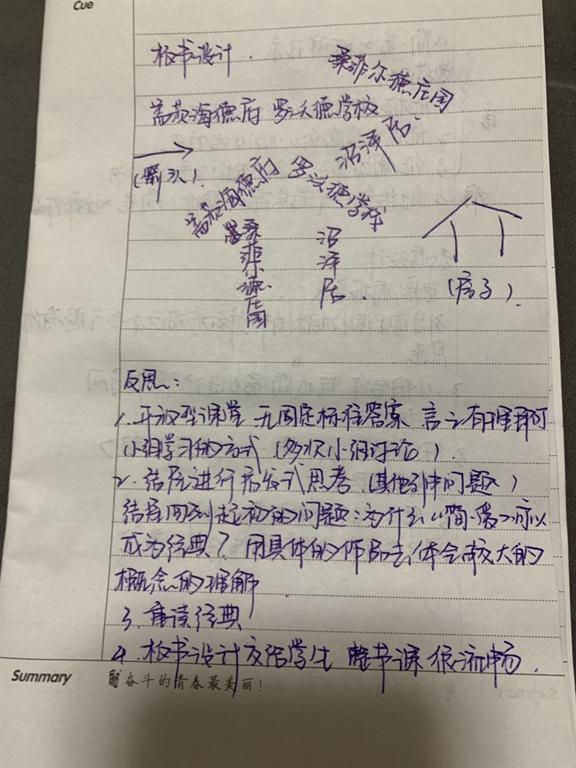 Cue
板书设计.
桑菲尔德庄园
盖茨海德府 罗沃德学校
沼泽居
(箭头)
盖茨海德府 罗沃德学校
桑菲德庄园
沼泽居
(房子).
反思:
1. 开放型课堂 无固定标准答案 言之有理即可
小组学习的方式 (多次小组讨论)
2. 结尾进行开放式思考 (其他引申问题)
结尾回到起初的问题:为什么《简·爱》可以
成为经典? 用具体的作品去体会较大的
概念的理解
3. 重读经典
4. 板书设计交给学生 整节课很流畅.
Summary
奋斗的青春最美丽!